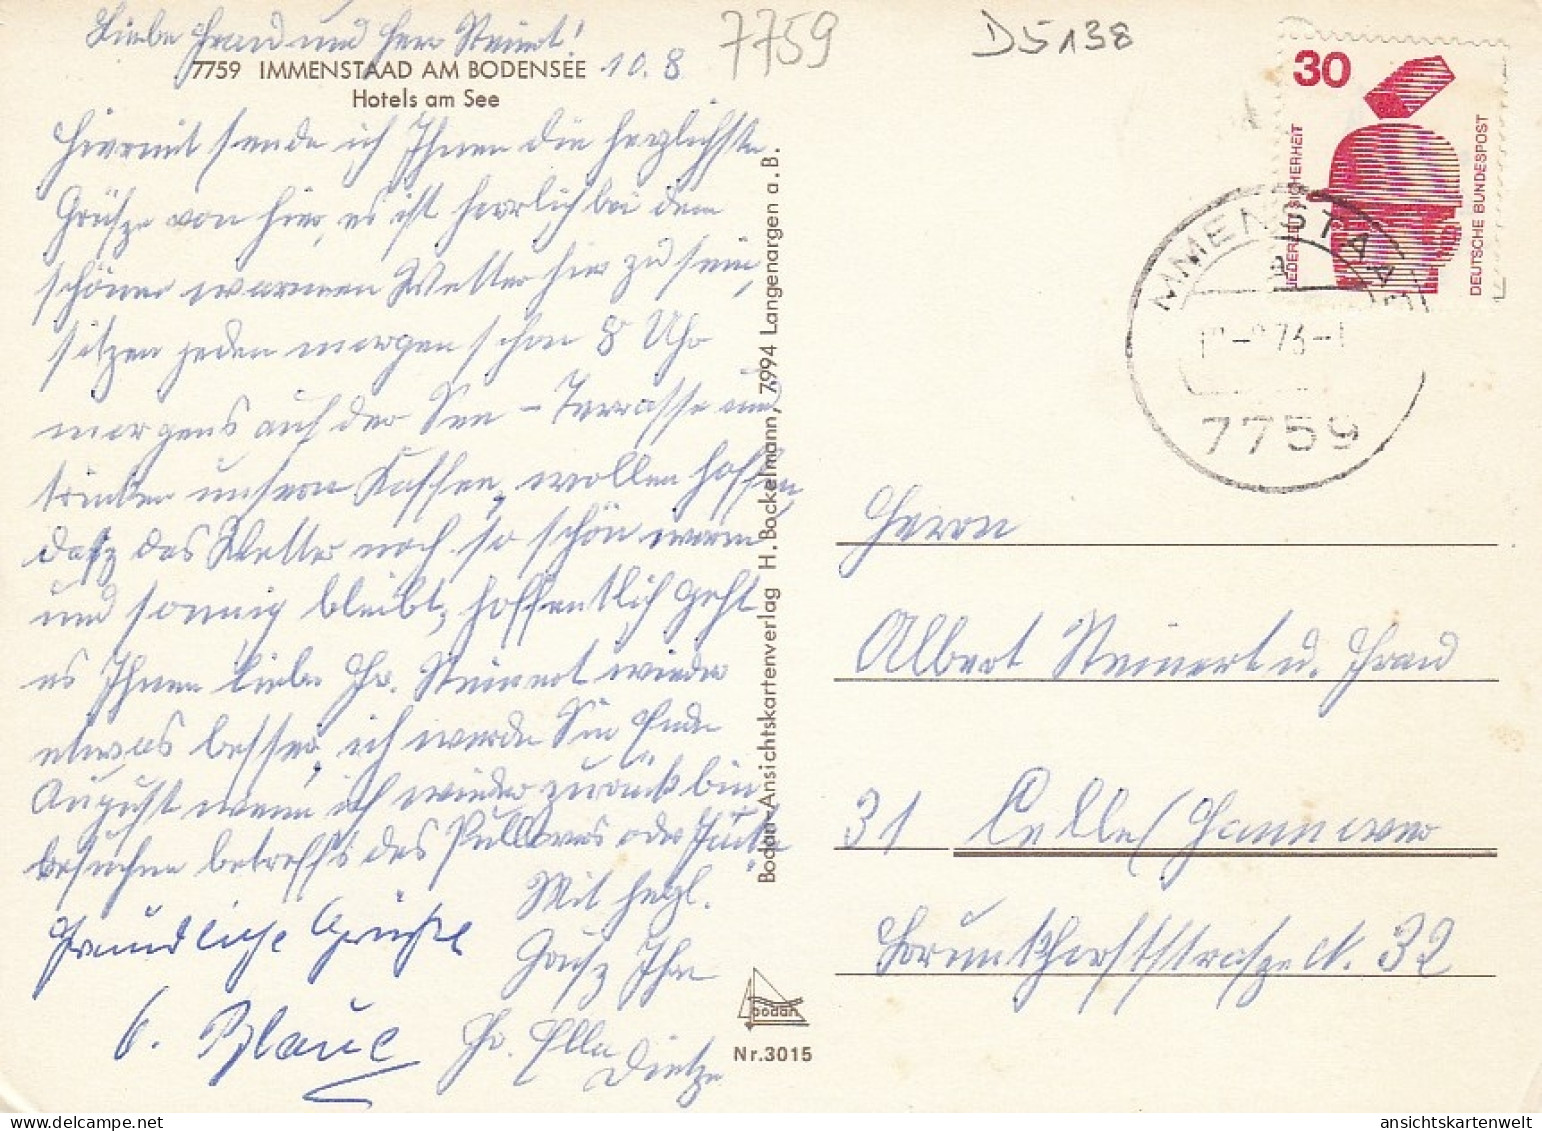 Liebe Frau und Herr Steinert!
7759 IMMENSTAAD AM BODENSEE 10.8
Hotels am See
Hiermit sende ich Ihnen die herzlichste
Grüsze von hier, es ist herrlich bei dem
schönen warmen Wetter hier zu sein,
sitzen jeden morgen schon 8 Uhr
morgens auf der See-Terrasse und
trinken unsern Kaffee, wollen hoffen
dasz das Wetter noch so schön warm
und sonnig bleibt, hoffentlich geht
es Ihnen liebe Fr. Steinert wieder
etwas besser, ich werde Sie Ende
August wenn ich wieder zurück bin
besuchen betreffs des Pullovers oder
Mit herzl.
Freundliche Grüße
Ihre
Fr. Ella
Dietze
Bodan-Ansichtskartenverlag H. Bockelmann, 7994 Langenargen a. B.
bodan
Nr. 3015
7759
D5138
30
JEDERZEIT SICHERHEIT
DEUTSCHE BUNDESPOST
IMMENSTAAD
a
7759
Herrn
Albert Steinert u. Frau
31 Celle/Hannover
32
ansichtskartenwelt.de